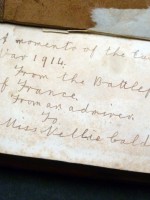 A momento of the Eu
War 1914.
From the Battlef
of France.
From an admirer.
To
Miss Nellie Cald